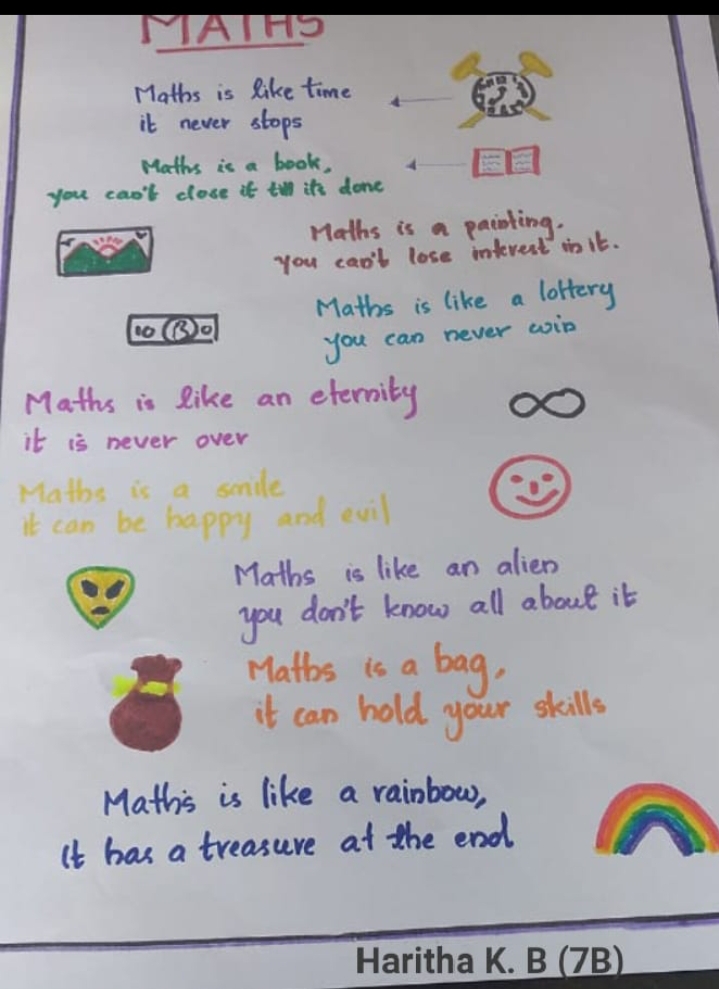 MATHS
Maths is like time
it never stops
Maths is a book,
you can't close it till its done
Maths is a painting.
you can't lose interest in it.
Maths is like a lottery
you can never win
10 B 0
Maths is like an eternity
it is never over
Maths is a smile
it can be happy and evil
Maths is like an alien
you don't know all about it
Maths is a bag,
it can hold your skills
Maths is like a rainbow,
It has a treasure at the end
Haritha K. B (7B)